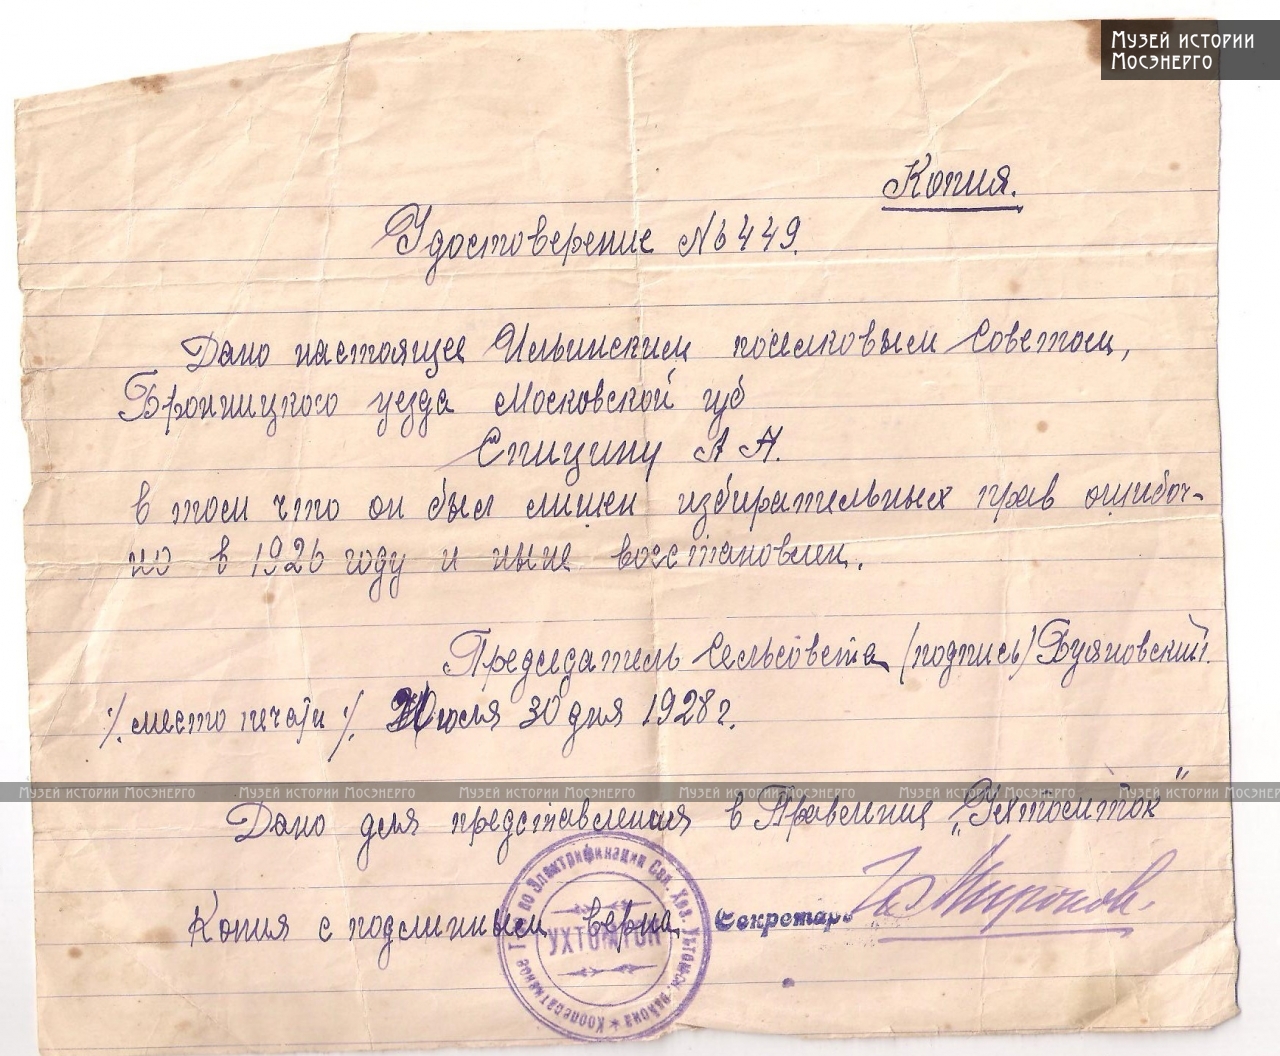 Музей истории
Мосэнерго
Копия.
Удостоверение № 449.
Дано настоящее Ильинским поселковым Советом,
Бронницкого уезда Московской губ
Спицину А А.
в том что он был лишен избирательных прав ошибоч-
но в 1926 году и ныне восстановлен.
Председатель Сельсовета (подпись) Буяновский.
/. место печати /. Июля 30 дня 1928 г.
Музей истории Мосэнерго Музей истории Мосэнерго Музей истории Мосэнерго Музей истории Мосэнерго Музей истории Мосэнерго Музей истории Мосэнерго
Дано для представления в Правления „Ухтомток"
Копия с подлинным верна, Секретарь Миронов.
Кооперативное по Электрификации Сел. Хоз. Ухтомск. района
УХТОМТОК